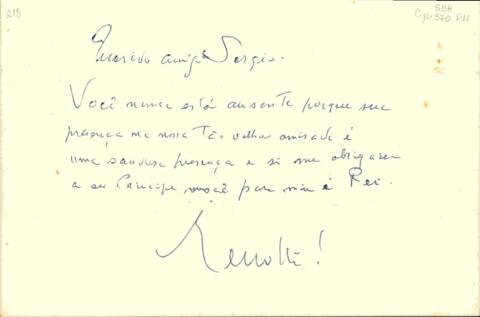 213
SBH
Cp 370 P11
Querido amigo Sergio.
Você nunca está ausente porque sua
presença na nossa tão velha amizade é
uma saudosa presença e si me obrigarem
a ser Principe você para mim é Rei.
Menotti!